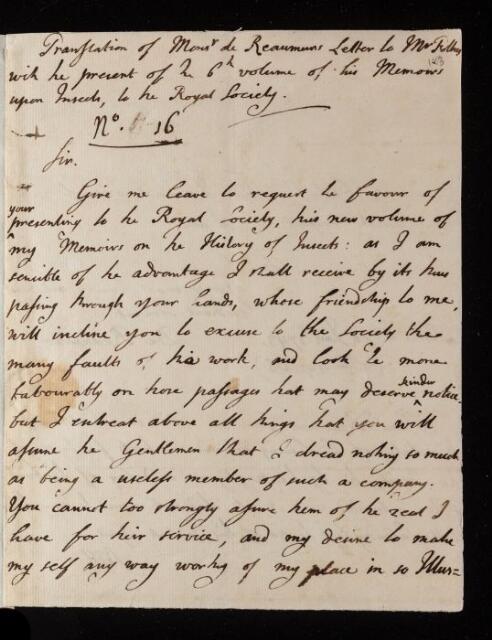 Translation of Mons.r de Reaumurs Letter to Mr
with he present of he 6th volume of his Memoirs
upon Insects, to he Royal Society.
No. 16
Sir.
Give me leave to request he favour of
your
presenting to he Royal Society, his new volume of
my Memoirs on he History of Insects: as I am
sensible of he advantage I shall receive by its hus
passing through your hands, whose friendship to me,
will incline you to excuse to the Society the
many faults of his work, and look he more
favourably on hose passages hat may deserve kinder notice.
but I entreat above all hings hat you will
assure he Gentlemen that I dread nohing so much
as being a useless member of such a company.
You cannot too strongly assure hem of he zeal I
have for heir service, and my desire to make
my self any way worhy of my place in so Illus=